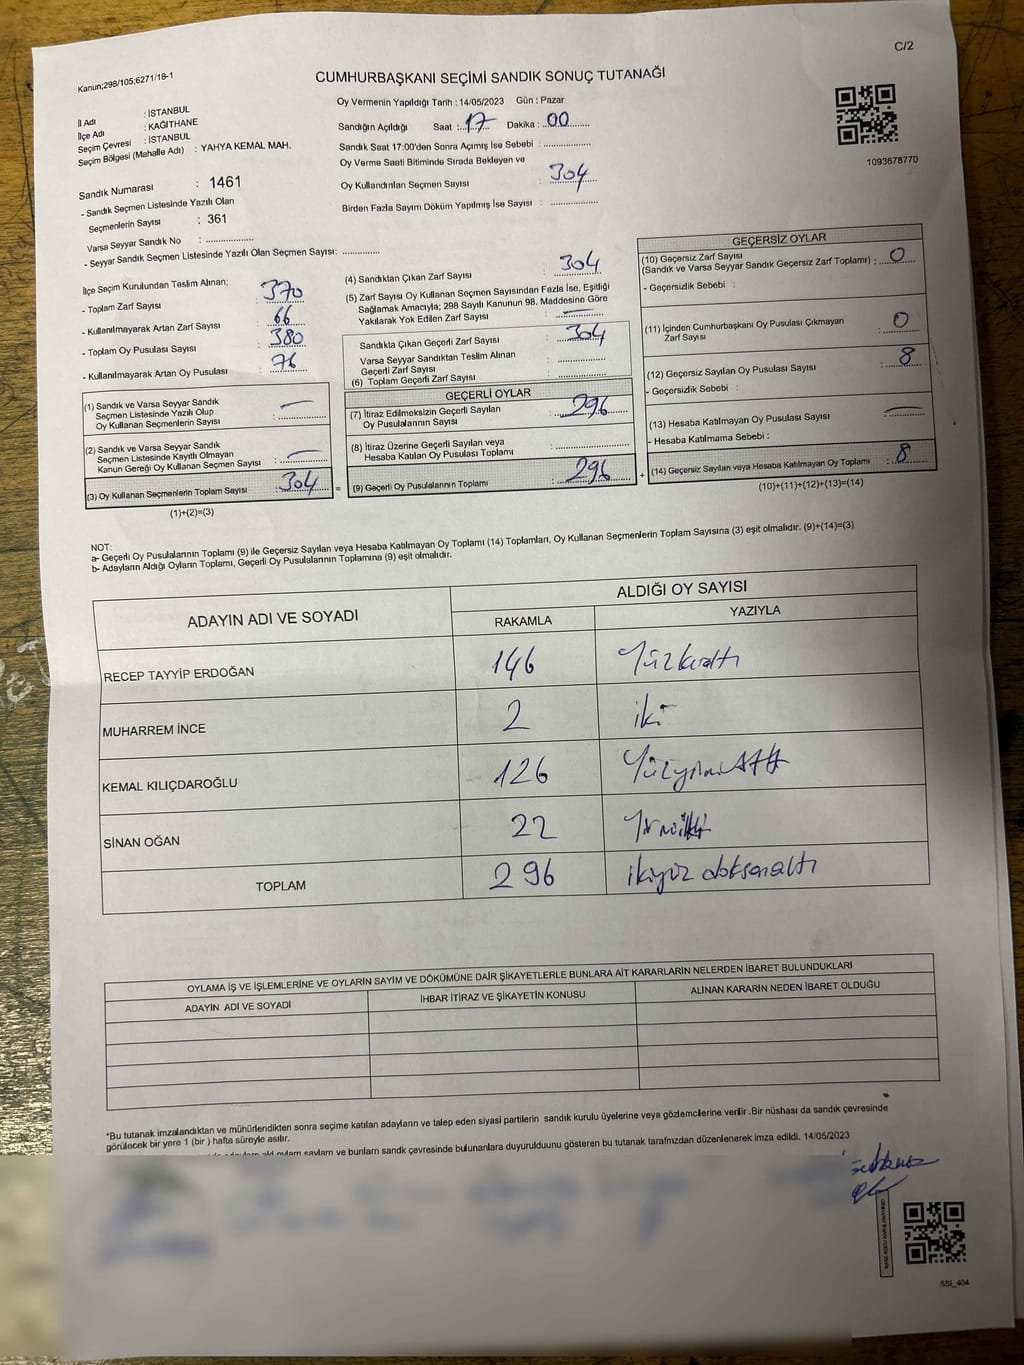 C/2
Kanun;298/105;6271/18-1
CUMHURBAŞKANI SEÇİMİ SANDIK SONUÇ TUTANAĞI
İl Adı : İSTANBUL
İlçe Adı : KAĞITHANE
Seçim Çevresi : İSTANBUL
Seçim Bölgesi (Mahalle Adı) : YAHYA KEMAL MAH.
Oy Vermenin Yapıldığı Tarih : 14/05/2023 Gün : Pazar
Sandığın Açıldığı Saat : 17 Dakika : 00
Sandık Saat 17:00'den Sonra Açımış İse Sebebi :
Oy Verme Saati Bitiminde Sırada Bekleyen ve
Oy Kullandırılan Seçmen Sayısı : 304
Birden Fazla Sayım Döküm Yapılmış İse Sayısı :
1093678770
Sandık Numarası : 1461
- Sandık Seçmen Listesinde Yazılı Olan
Seçmenlerin Sayısı : 361
Varsa Seyyar Sandık No :
- Seyyar Sandık Seçmen Listesinde Yazılı Olan Seçmen Sayısı:
İlçe Seçim Kurulundan Teslim Alınan;
- Toplam Zarf Sayısı : 370
- Kullanılmayarak Artan Zarf Sayısı : 66
- Toplam Oy Pusulası Sayısı : 380
- Kullanılmayarak Artan Oy Pusulası : 76
(1) Sandık ve Varsa Seyyar Sandık
Seçmen Listesinde Yazılı Olup
Oy Kullanan Seçmenlerin Sayısı : —
(2) Sandık ve Varsa Seyyar Sandık
Seçmen Listesinde Kayıtlı Olmayan
Kanun Gereği Oy Kullanan Seçmen Sayısı : —
(3) Oy Kullanan Seçmenlerin Toplam Sayısı : 304 =
(1)+(2)=(3)
(4) Sandıktan Çıkan Zarf Sayısı : 304
(5) Zarf Sayısı Oy Kullanan Seçmen Sayısından Fazla İse, Eşitliği
Sağlamak Amacıyla; 298 Sayılı Kanunun 98. Maddesine Göre
Yakılarak Yok Edilen Zarf Sayısı : —
Sandıkta Çıkan Geçerli Zarf Sayısı : 304
Varsa Seyyar Sandıktan Teslim Alınan
Geçerli Zarf Sayısı :
(6) Toplam Geçerli Zarf Sayısı :
GEÇERLİ OYLAR
(7) İtiraz Edilmeksizin Geçerli Sayılan
Oy Pusulasının Sayısı : 296
(8) İtiraz Üzerine Geçerli Sayılan veya
Hesaba Katılan Oy Pusulası Toplamı :
(9) Geçerli Oy Pusulalarının Toplamı : 296 +
GEÇERSİZ OYLAR
(10) Geçersiz Zarf Sayısı
(Sandık ve Varsa Seyyar Sandık Geçersiz Zarf Toplamı) : 0
- Geçersizlik Sebebi :
(11) İçinden Cumhurbaşkanı Oy Pusulası Çıkmayan
Zarf Sayısı : 0
(12) Geçersiz Sayılan Oy Pusulası Sayısı : 8
- Geçersizlik Sebebi :
(13) Hesaba Katılmayan Oy Pusulası Sayısı : —
- Hesaba Katılmama Sebebi :
(14) Geçersiz Sayılan veya Hesaba Katılmayan Oy Toplamı : 8
(10)+(11)+(12)+(13)=(14)
NOT:
a- Geçerli Oy Pusulalarının Toplamı (9) ile Geçersiz Sayılan veya Hesaba Katılmayan Oy Toplamı (14) Toplamları, Oy Kullanan Seçmenlerin Toplam Sayısına (3) eşit olmalıdır. (9)+(14)=(3)
b- Adayların Aldığı Oyların Toplamı, Geçerli Oy Pusulalarının Toplamına (9) eşit olmalıdır.
ADAYIN ADI VE SOYADI
ALDIĞI OY SAYISI
RAKAMLA YAZIYLA
RECEP TAYYİP ERDOĞAN 146 Yüzkırkaltı
MUHARREM İNCE 2 iki
KEMAL KILIÇDAROĞLU 126 Yüzyirmialtı
SİNAN OĞAN 22 Yirmiiki
TOPLAM 296 ikiyüz doksanaltı
OYLAMA İŞ VE İŞLEMLERİNE VE OYLARIN SAYIM VE DÖKÜMÜNE DAİR ŞİKAYETLERLE BUNLARA AİT KARARLARIN NELERDEN İBARET BULUNDUKLARI
ADAYIN ADI VE SOYADI İHBAR İTİRAZ VE ŞİKAYETİN KONUSU ALINAN KARARIN NEDEN İBARET OLDUĞU
*Bu tutanak imzalandıktan ve mühürlendikten sonra seçime katılan adayların ve talep eden siyasi partilerin sandık kurulu üyelerine veya gözlemcilerine verilir .Bir nüshası da sandık çevresinde
görülecek bir yere 1 (bir ) hafta süreyle asılır.
sayım ve bunların sandk çevresinde bulunanlara duyurulduunu gösteren bu tutanak tarafmzdan düzenlenerek imza edildi. 14/05/2023
SSI_404